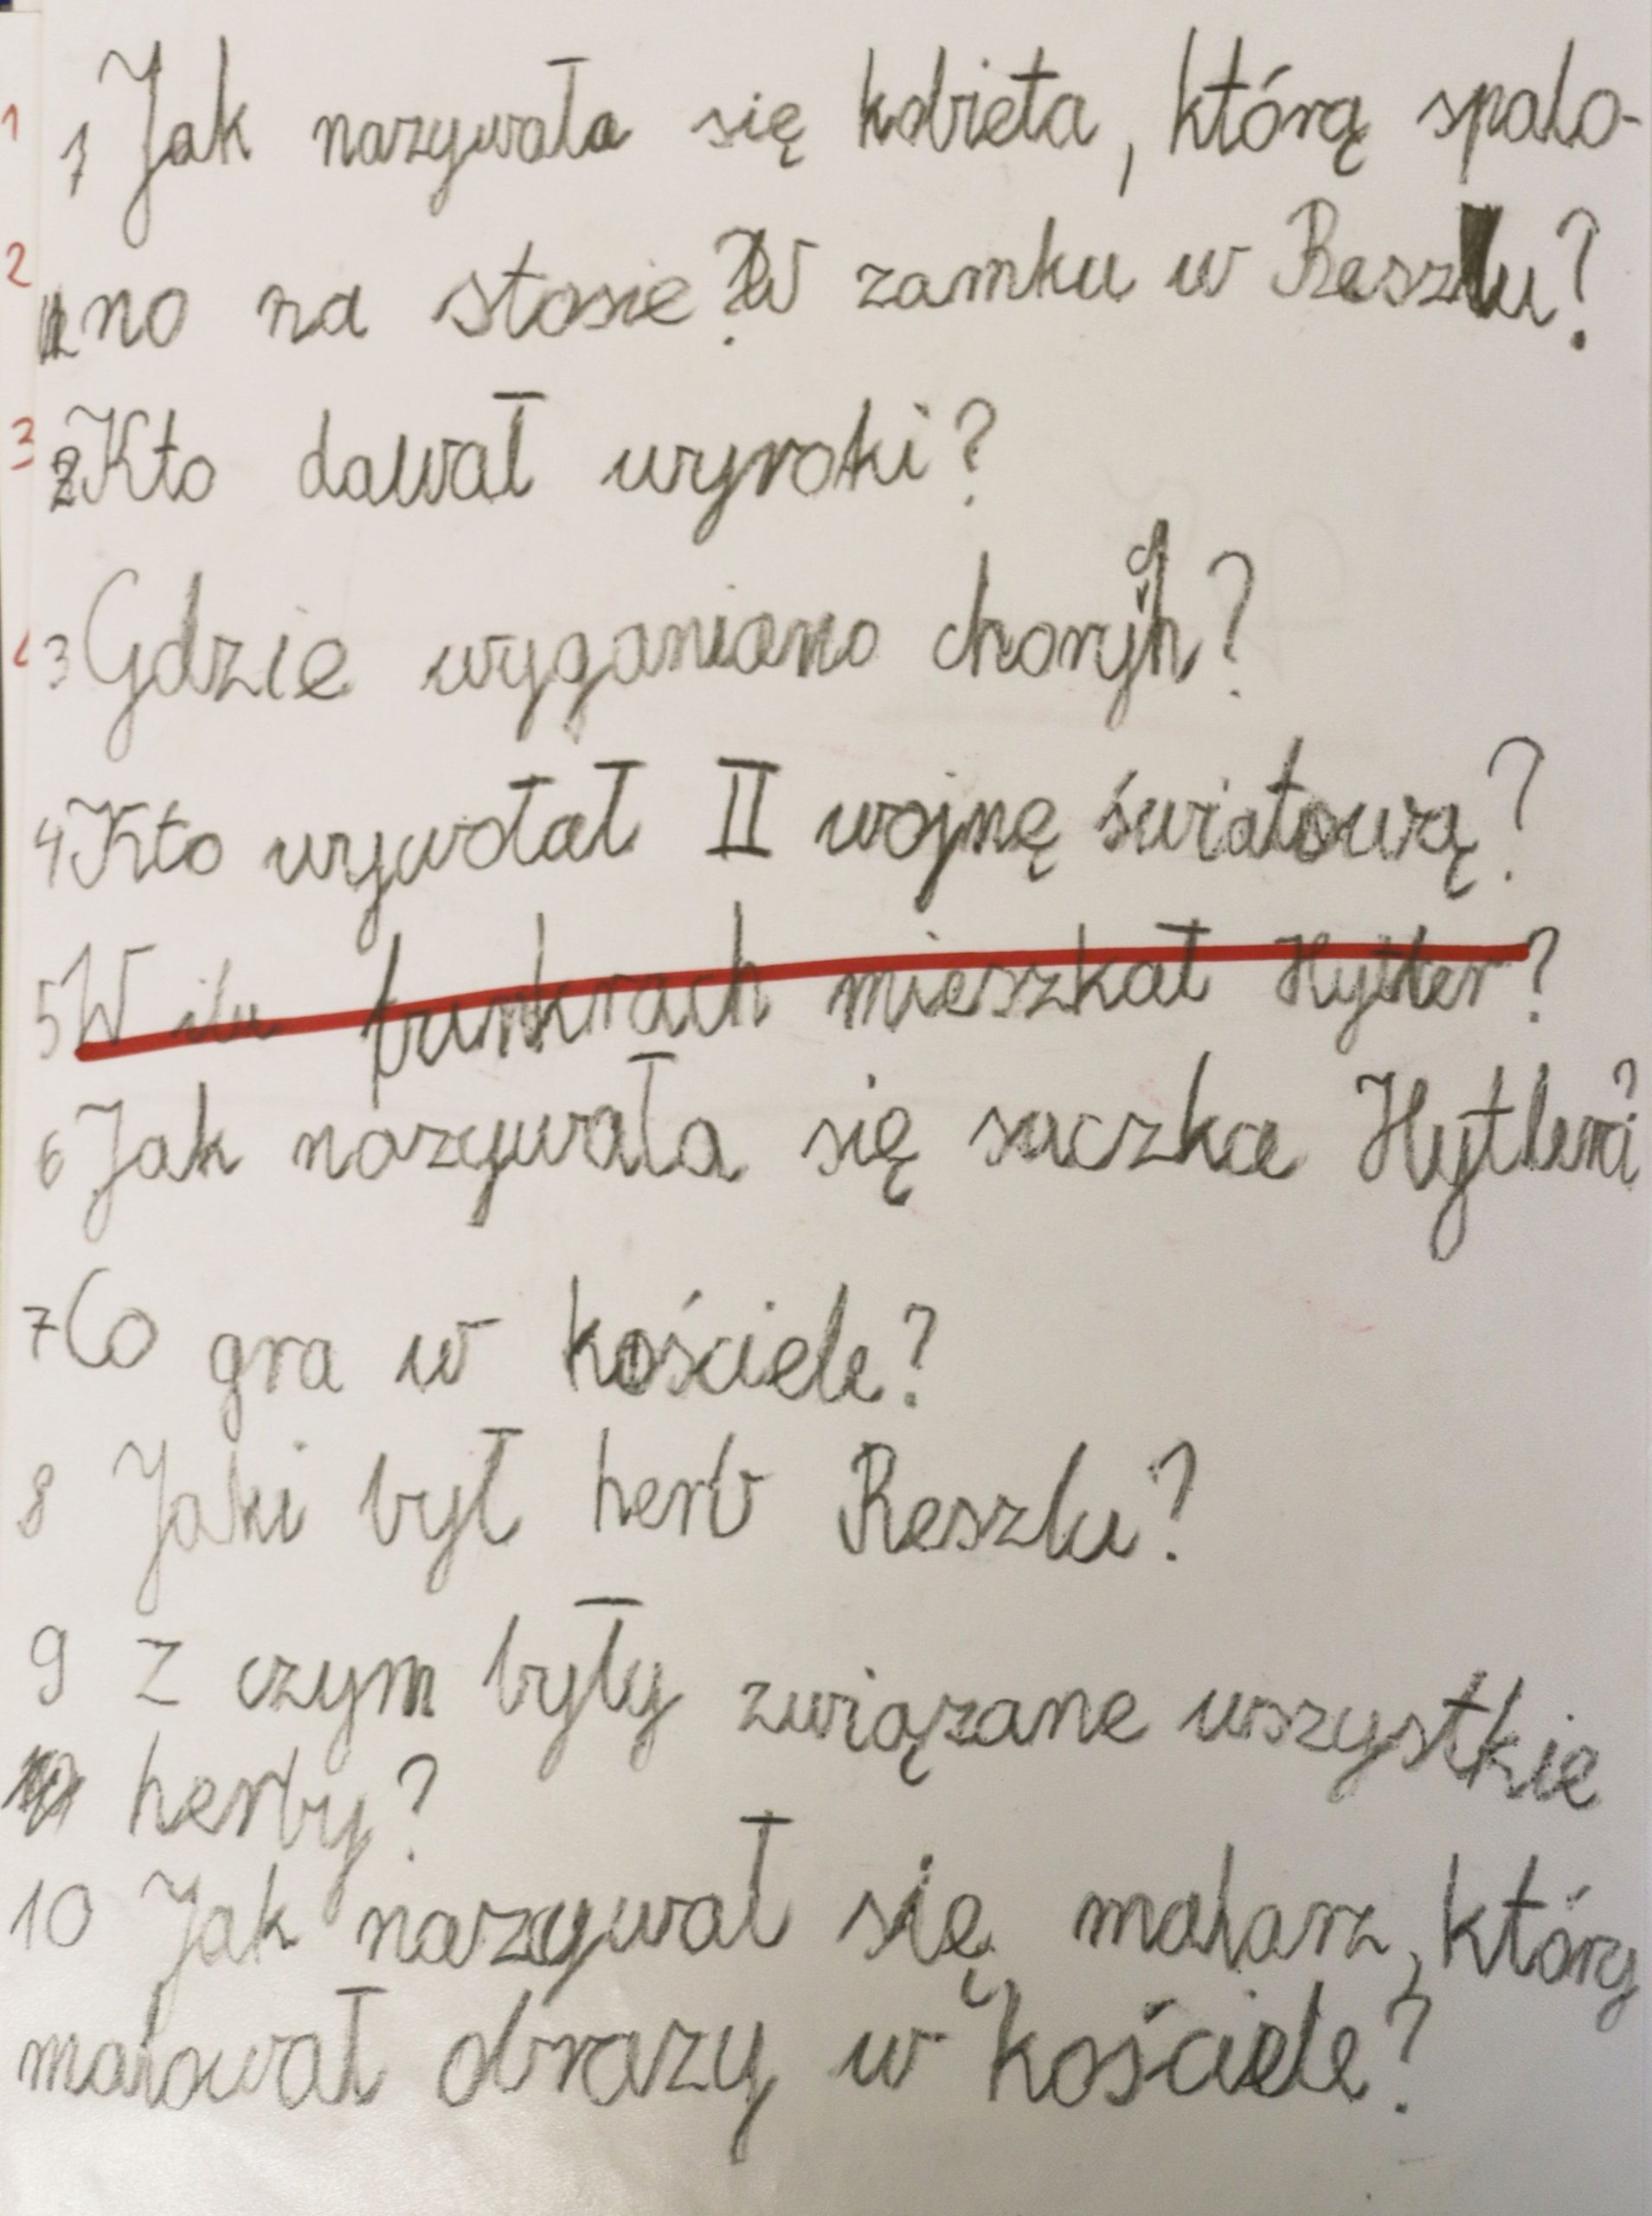 1 1 Jak nazywała się kobieta, którą spalo-
2 no na stosie? W zamku w Reszlu?
3 2 Kto dawał wyroki?
3 Gdzie wyganiano chorych?
4 Kto wywołał II wojnę światową?
5 W ilu bunkrach mieszkał Hytler?
6 Jak nazywała się suczka Hytlera?
7 Co gra w kościele?
8 Jaki był herb Reszlu?
9 Z czym były związane wszystkie
herby?
10 Jak nazywał się malarz, który
malował obrazy w kościele?